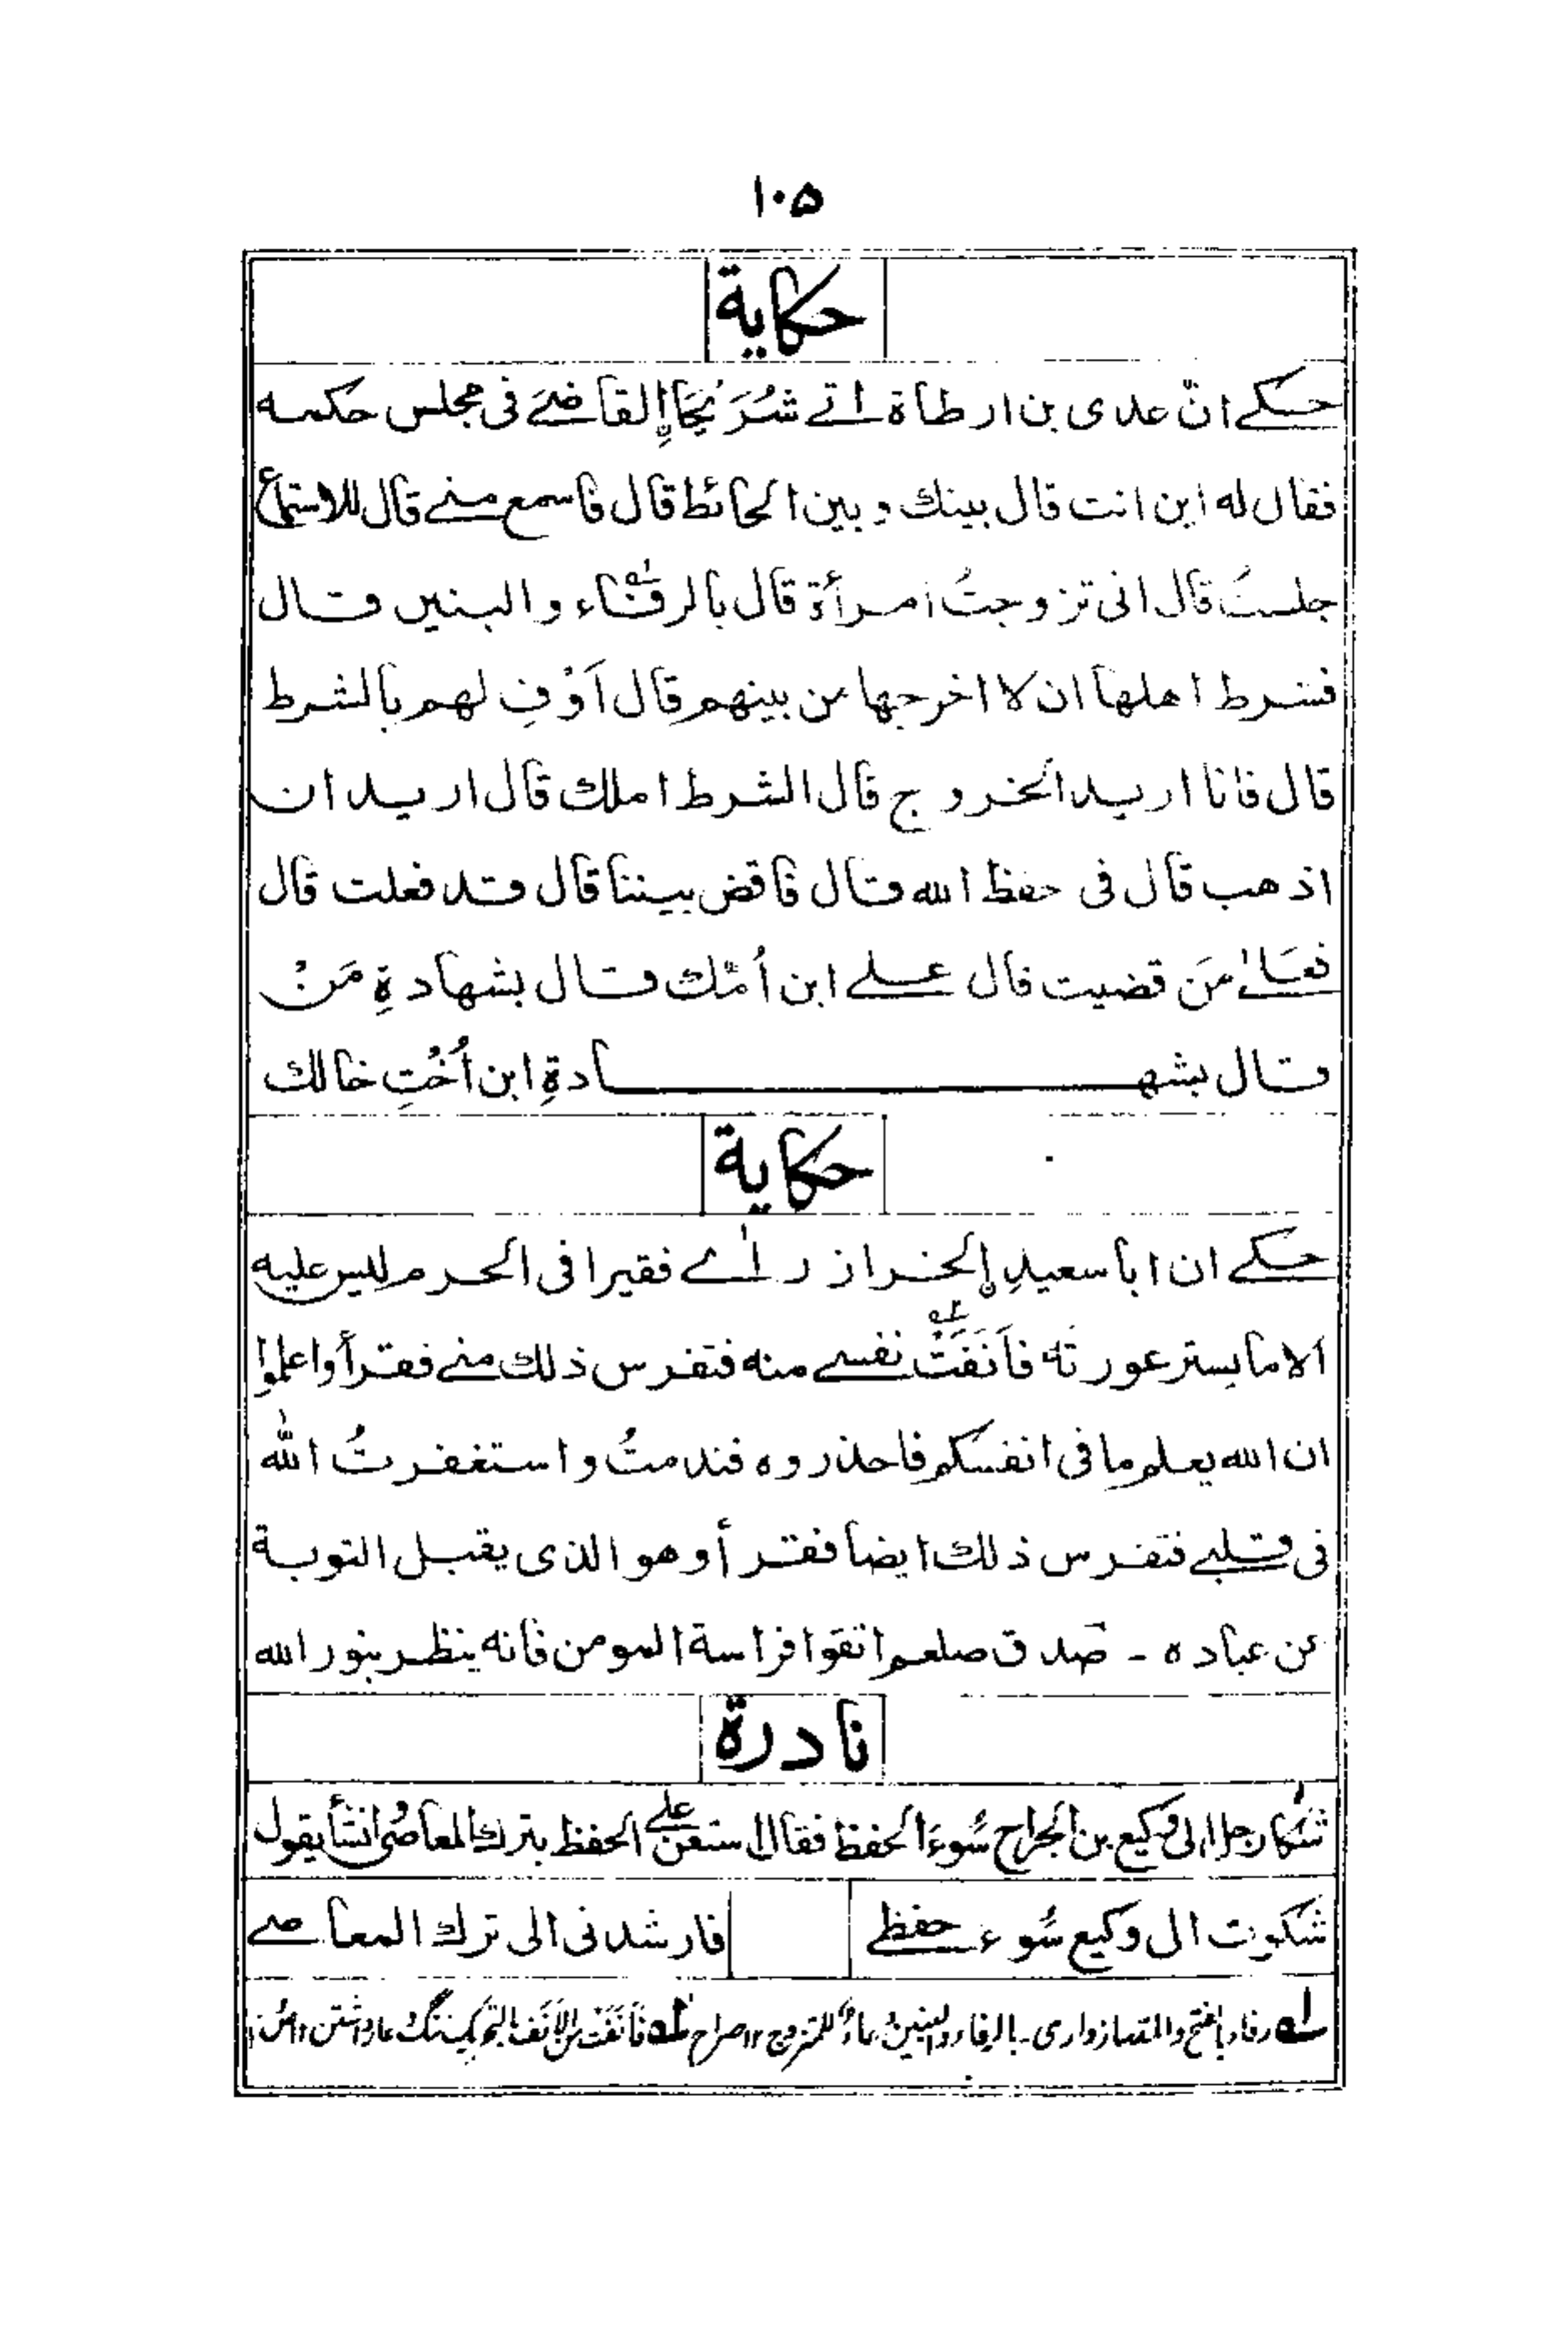 ۱۰۵
حكاية
حكے انّ عدى بن ارطاة اتے شُرَيحَاۨ القاضے فى مجلس حكمه
فقال له اين انت قال بينك و بين الحائط قال فاسمع منے قال للاستماع
جلستُ قال انى تزوجتُ امرأة قال بالرفاء والبنين قال
فشرط اهلها ان لا اخرجها من بينهم قال اَوْفِ لهم بالشرط
قال فانا اريد الخروج قال الشرط املك قال اريد ان
اذهب قال فى حفظ الله قال فاقض بيننا قال قد فعلت قال
فعلٰے مَن قضيت قال علے ابن اُمّك قال بشهادةِ مَنْ
قال بشهادةِ ابن اُخْتِ خالك
حكاية
حكے ان ابا سعيدِ ۨالخراز راٰے فقيرا فى الحرم ليس عليه
الا ما يستر عورته فاَنَفَتْ نفسے منه فتفرس ذلك منے فقرأ واعلموا
ان الله يعلم ما فى انفسكم فاحذروه فندمتُ واستغفرتُ اللّٰه
فى قلبے فتفرس ذلك ايضا فقرأ وهو الذى يقبل التوبة
عن عباده ـ صَدق صلعم اتقوا فراسة المومن فانه ينظر بنور الله
نادرة
شكا رجل الى وكيع بن الجراح سُوءَ الحفظ فقال استعن علے الحفظ بترك المعاصے وانشأ يقول
شكوت الى وكيع سُوء حفظے
فارشدنى الى ترك المعاصے
لـه رفاء بالفتح والمد سازوارى ـ بالرفاء والبنين دعاءٌ للمتزوج ۱۲ صراح